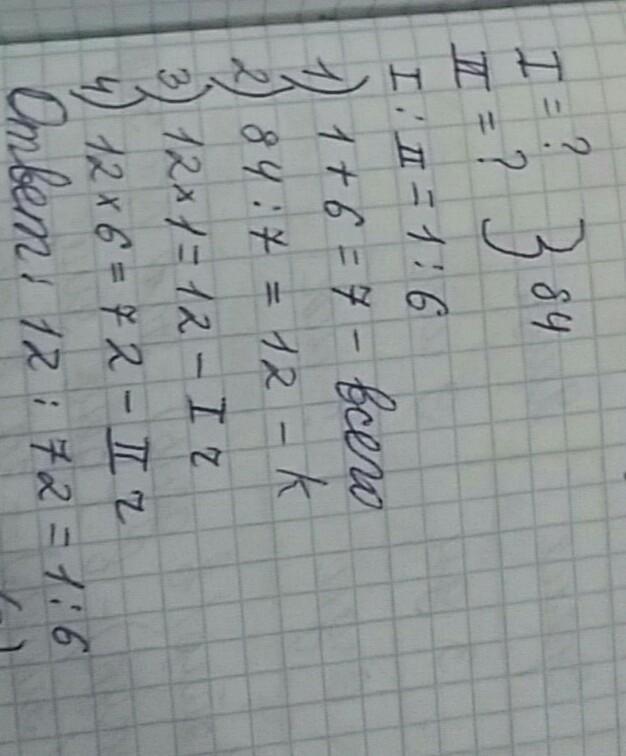 I = ?
II = ? } 84
I : II = 1 : 6
1) 1 + 6 = 7 - всего
2) 84 : 7 = 12 - k
3) 12 × 1 = 12 - I г
4) 12 × 6 = 72 - II г
Ответ: 12 : 72 = 1 : 6